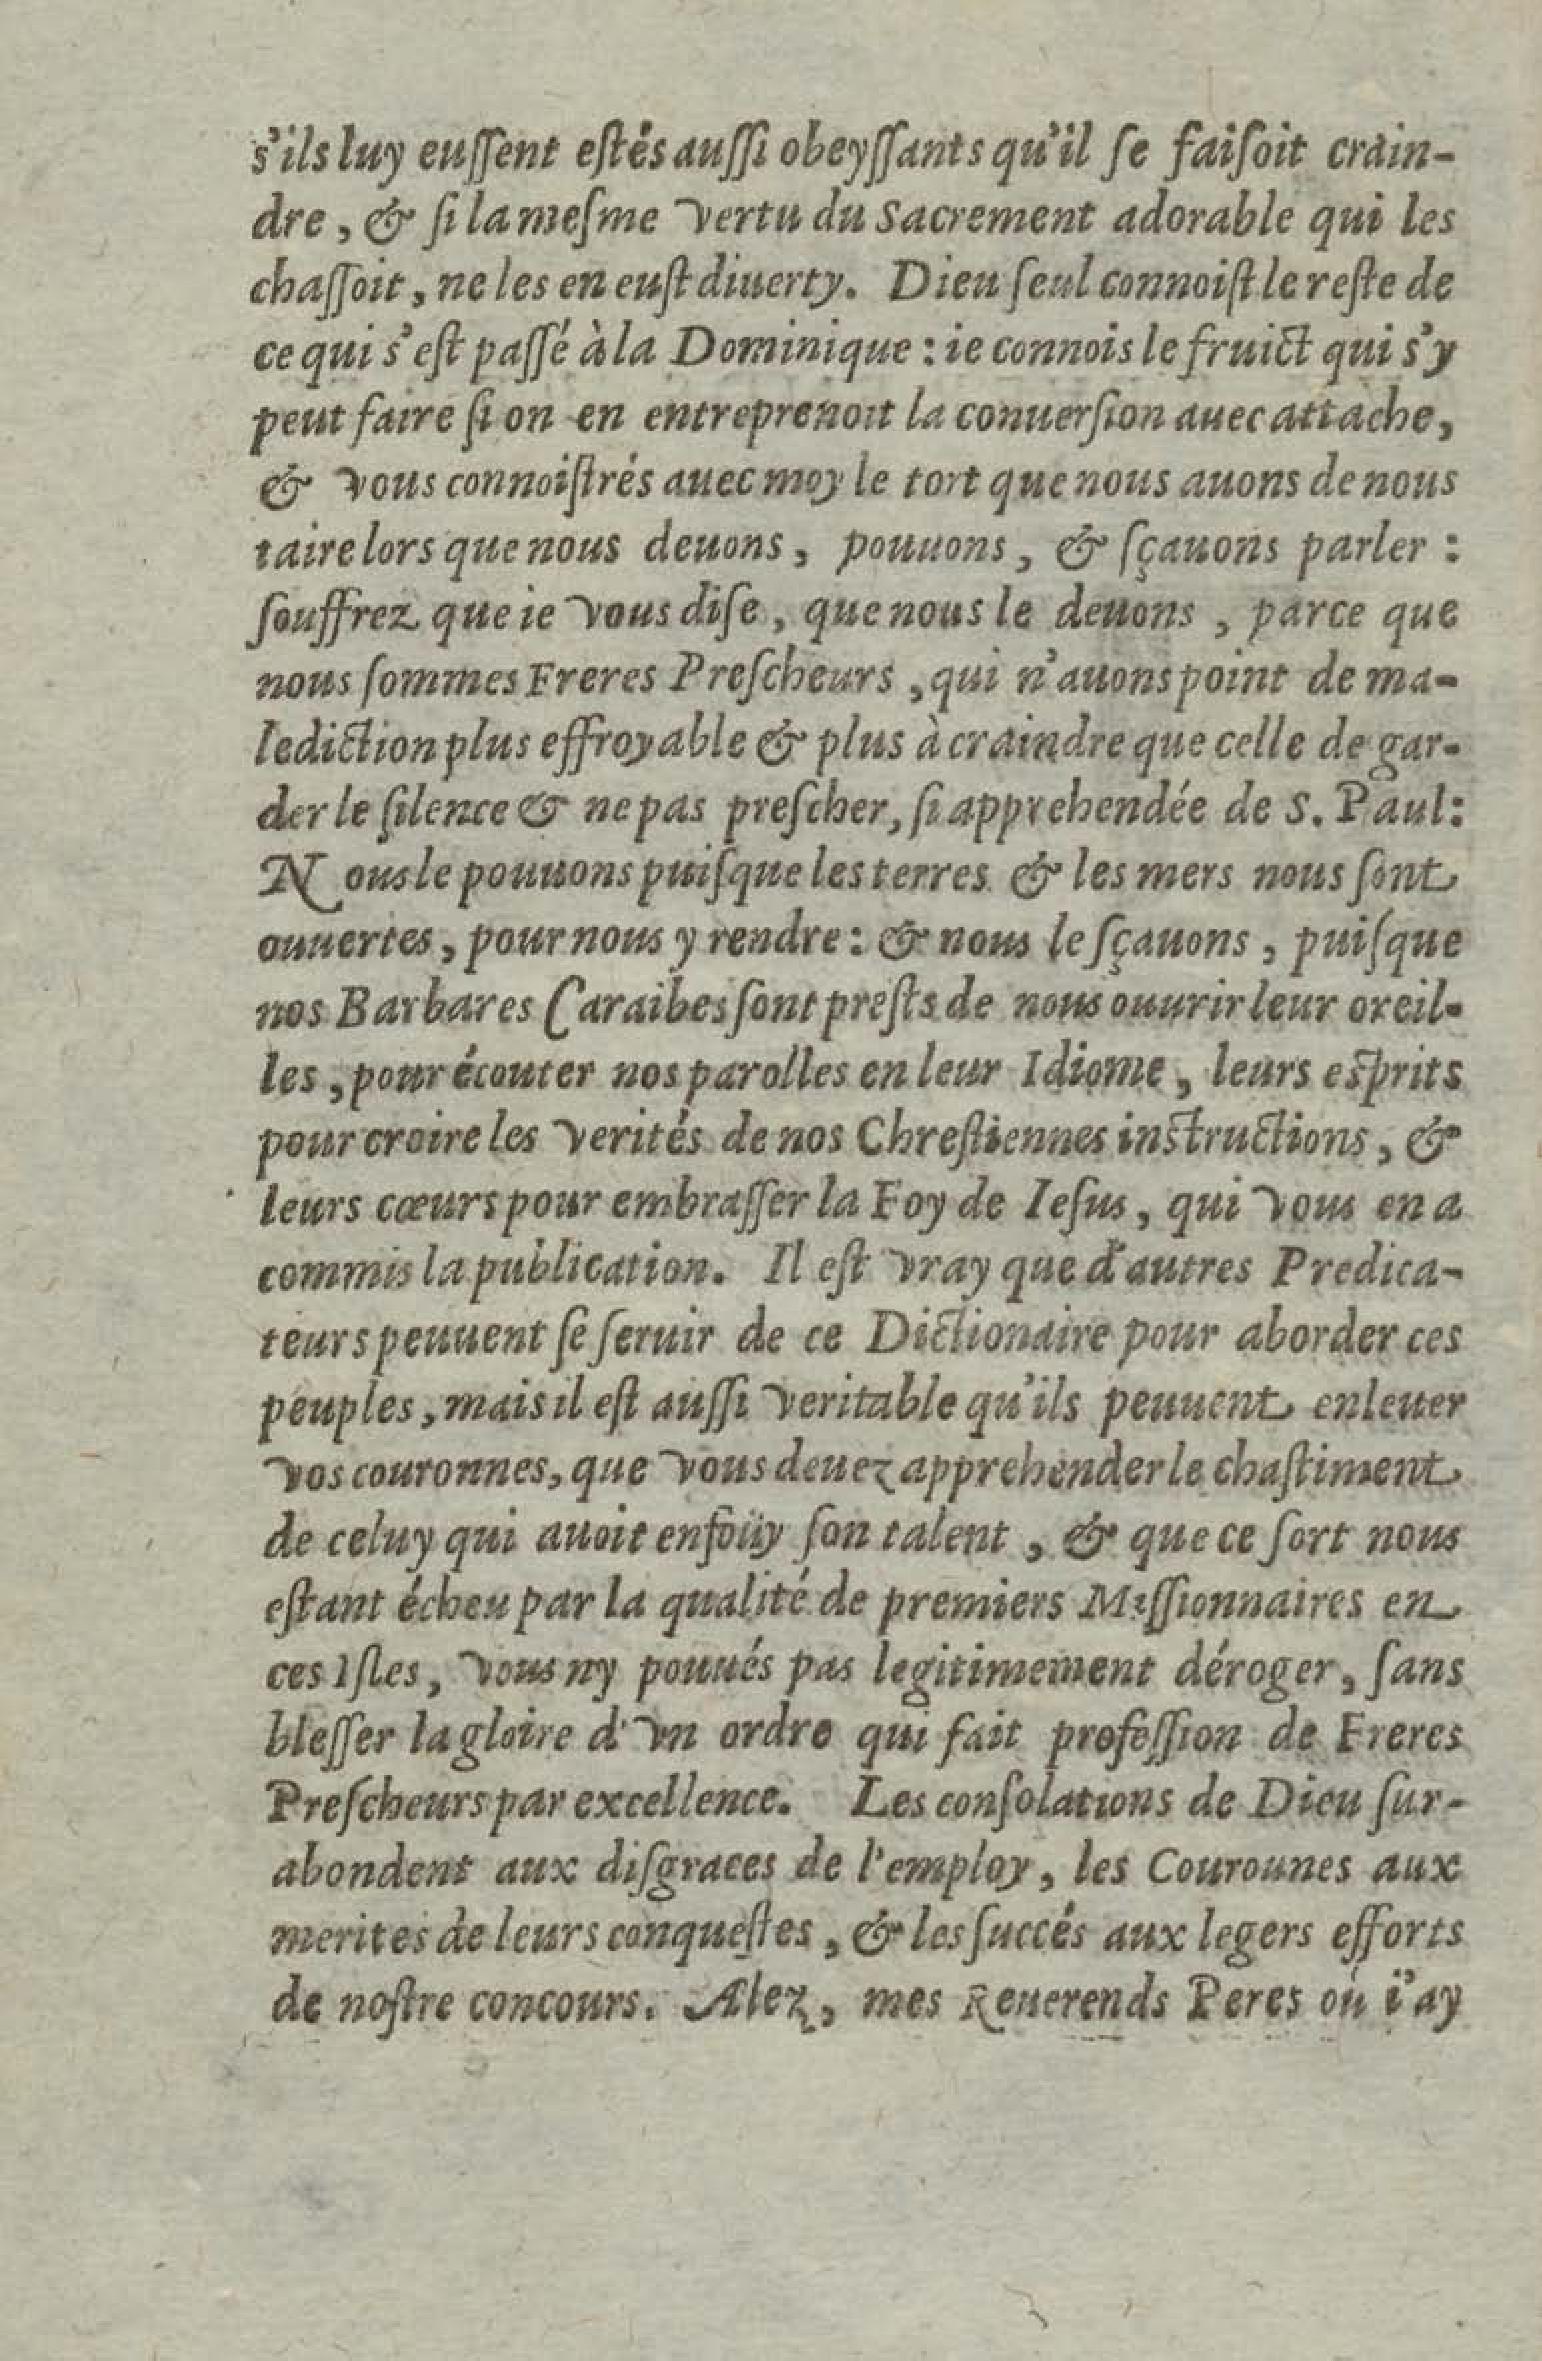 s'ils luy euſſent eſtés auſſi obeyſſants qu'il ſe faiſoit crain-
dre, & ſi la meſme vertu du Sacrement adorable qui les
chaſſoit, ne les en euſt diuerty. Dieu ſeul connoiſt le reſte de
ce qui s'eſt paſſé à la Dominique : ie connois le fruict qui s'y
peut faire ſi on en entreprenoit la conuerſion auec attache,
& vous connoiſtrés auec moy le tort que nous auons de nous
taire lors que nous deuons, pouuons, & ſçauons parler :
ſouffrez que ie vous diſe, que nous le deuons, parce que
nous ſommes Freres Preſcheurs, qui n'auons point de ma-
lediction plus effroyable & plus à craindre que celle de gar-
der le ſilence & ne pas preſcher, ſi apprehendée de S. Paul:
Nous le pouuons puiſque les terres & les mers nous ſont
ouuertes, pour nous y rendre : & nous le ſçauons, puiſque
nos Barbares Caraibes ſont preſts de nous ouurir leur oreil-
les, pour écouter nos parolles en leur Idiome, leurs esprits
pour croire les verités de nos Chreſtiennes instructions, &
leurs cœurs pour embraſſer la Foy de Ieſus, qui vous en a
commis la publication. Il eſt vray que d'autres Predica-
teurs peuuent ſe ſeruir de ce Dictionaire pour aborder ces
peuples, mais il eſt auſſi veritable qu'ils peuuent enleuer
vos couronnes, que vous deuez apprehender le chaſtiment
de celuy qui auoit enfoüy ſon talent, & que ce ſort nous
eſtant écheu par la qualité de premiers Miſſionnaires en
ces Iſles, vous ny pouués pas legitimement déroger, ſans
bleſſer la gloire d'vn ordre qui fait profeſſion de Freres
Preſcheurs par excellence. Les conſolations de Dieu ſur-
abondent aux diſgraces de l'employ, les Courounes aux
merites de leurs conqueſtes, & les ſuccés aux legers efforts
de noſtre concours. Alez, mes Reuerends Peres où i'ay